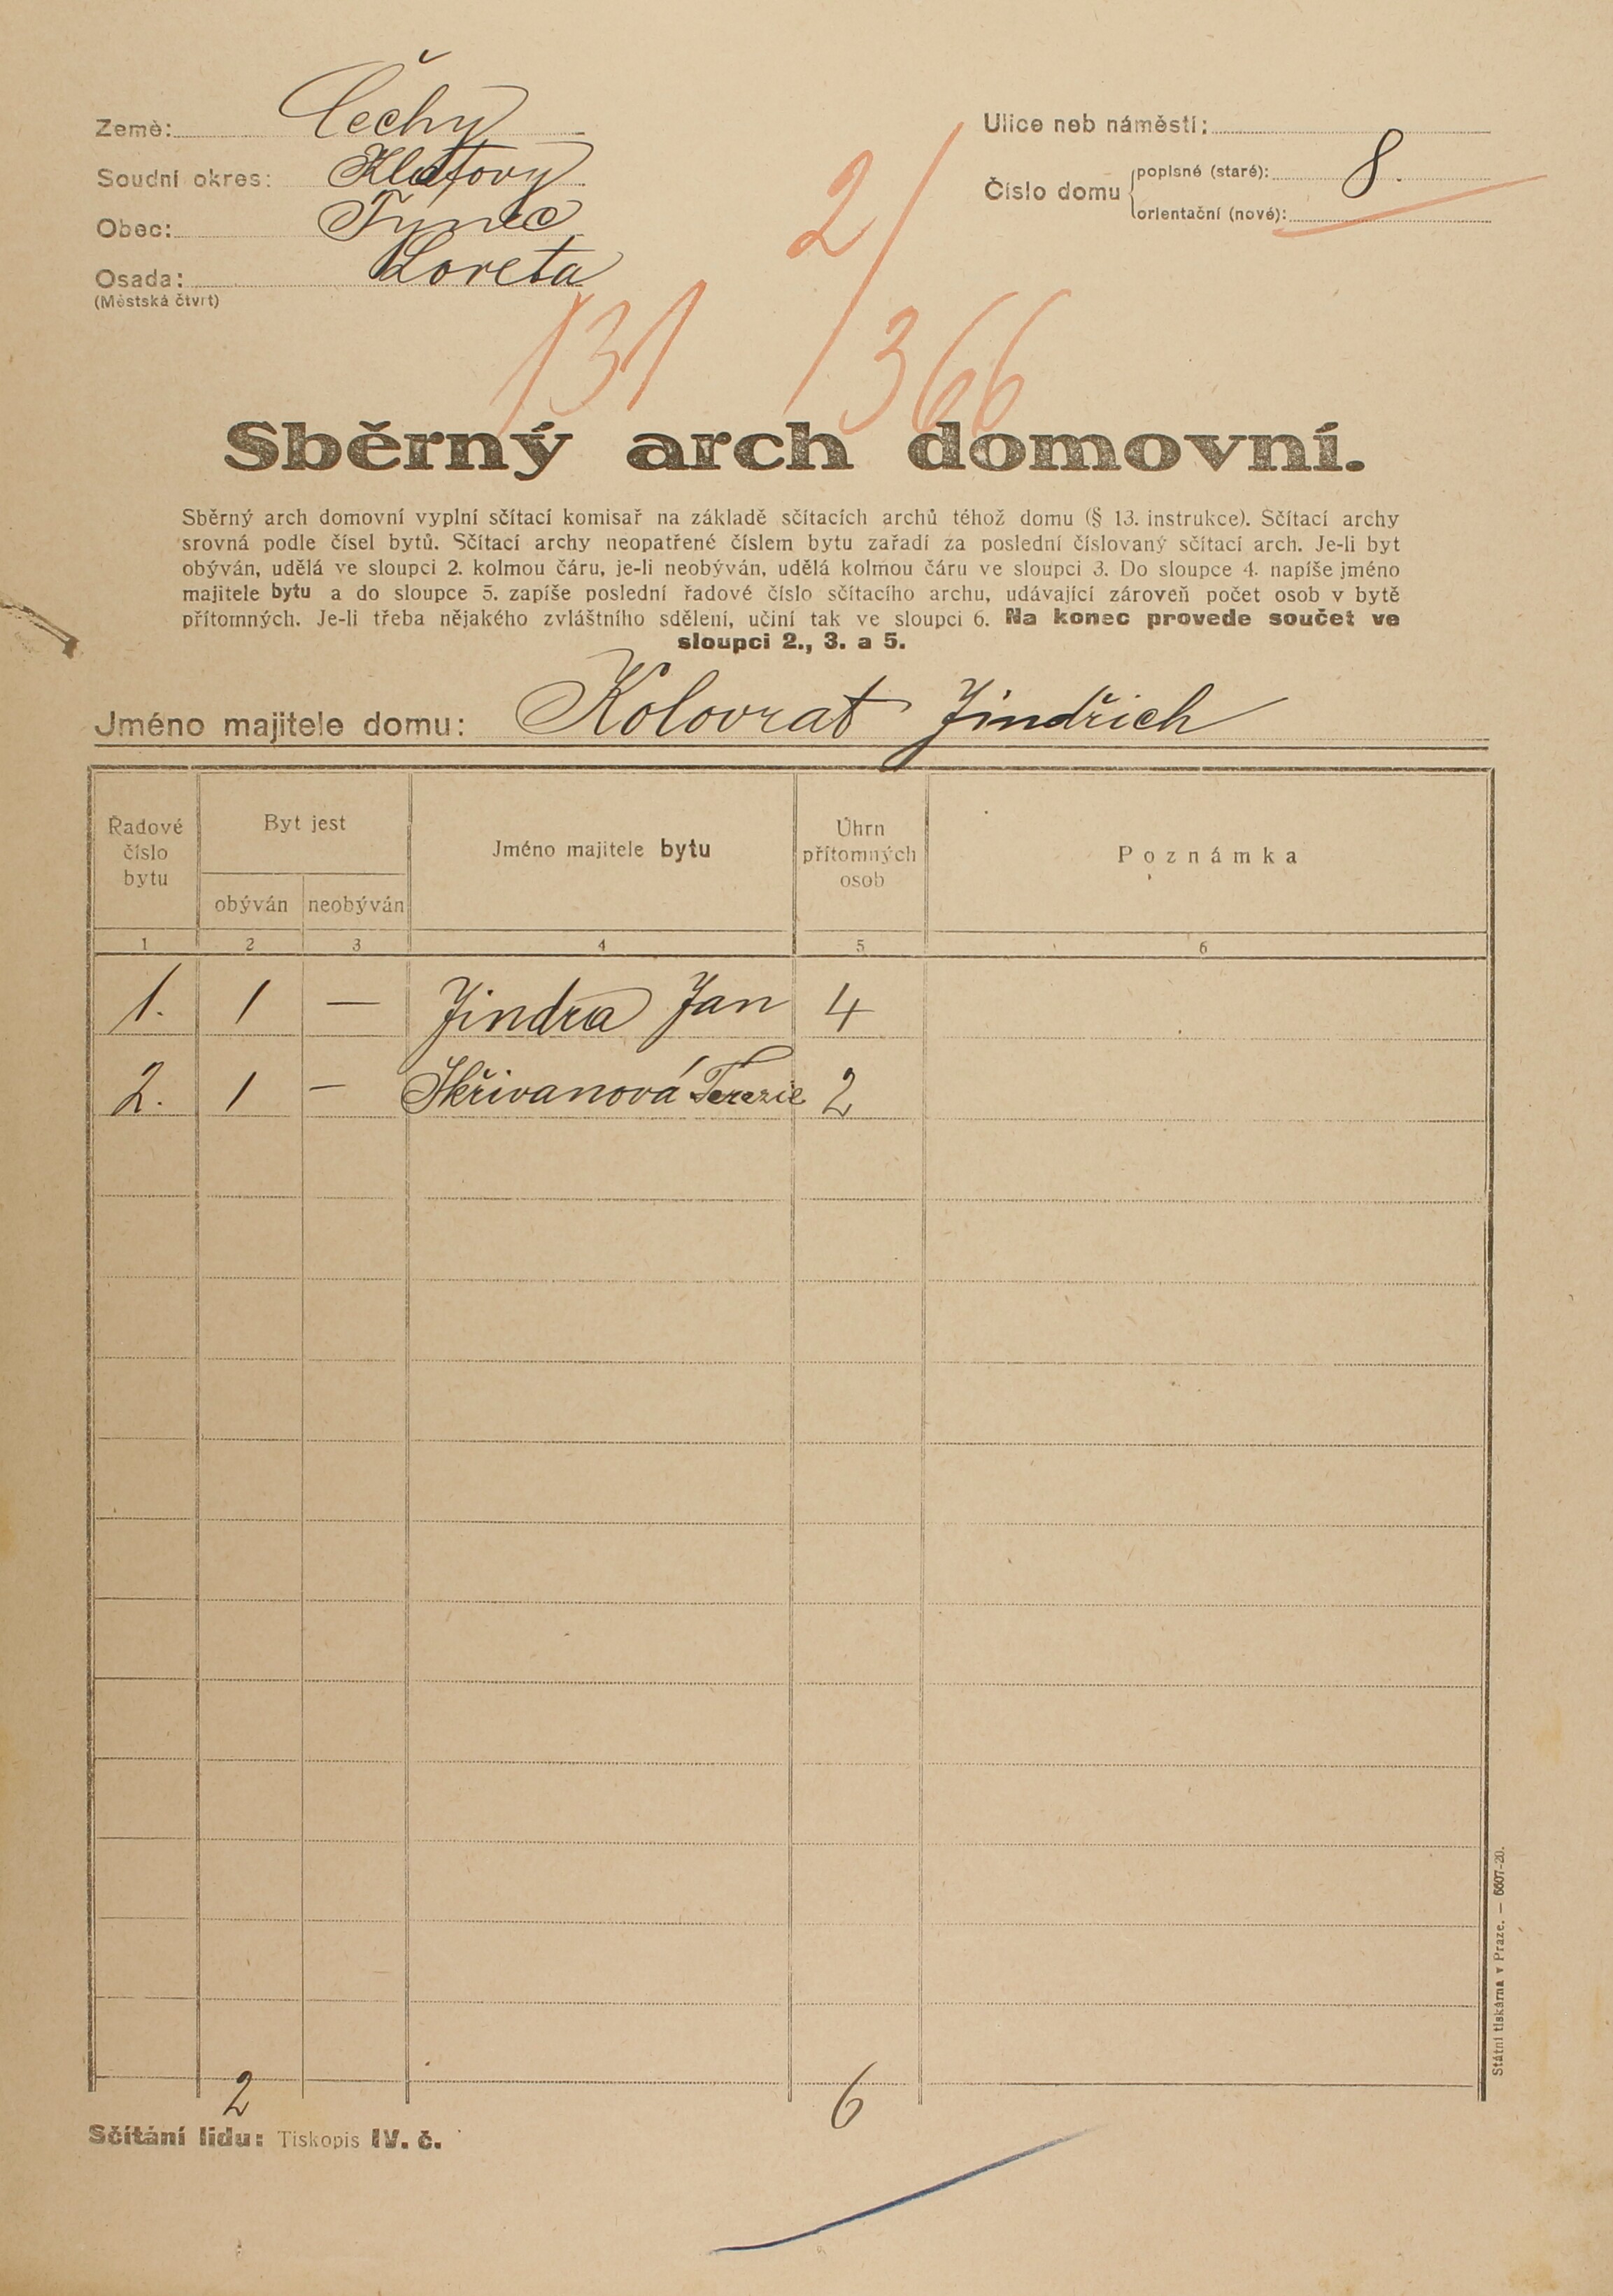 Země: Čechy
Soudní okres: Klatovy
Obec: Týnec
Osada: Loreta
(Městská čtvrť)
Ulice neb náměstí:
Číslo domu
popisné (staré): 8.
orientační (nové):
2/
131 366
Sběrný arch domovní.
Sběrný arch domovní vyplní sčítací komisař na základě sčítacích archů téhož domu (§ 13. instrukce). Sčítací archy
srovná podle čísel bytů. Sčítací archy neopatřené číslem bytu zařadí za poslední číslovaný sčítací arch. Je-li byt
obýván, udělá ve sloupci 2. kolmou čáru, je-li neobýván, udělá kolmou čáru ve sloupci 3. Do sloupce 4. napíše jméno
majitele bytu a do sloupce 5. zapíše poslední řadové číslo sčítacího archu, udávající zároveň počet osob v bytě
přítomných. Je-li třeba nějakého zvláštního sdělení, učiní tak ve sloupci 6. Na konec provede součet ve
sloupci 2., 3. a 5.
Jméno majitele domu: Kolovrat Jindřich
Řadové číslo bytu
Byt jest
obýván neobýván
Jméno majitele bytu
Úhrn přítomných osob
Poznámka
1 2 3 4 5 6
1. 1 — Jindra Jan 4
2. 1 — Skřivanová Terezie 2
2 6
Sčítání lidu: Tiskopis IV. č.
Státní tiskárna v Praze. — 6607-20.